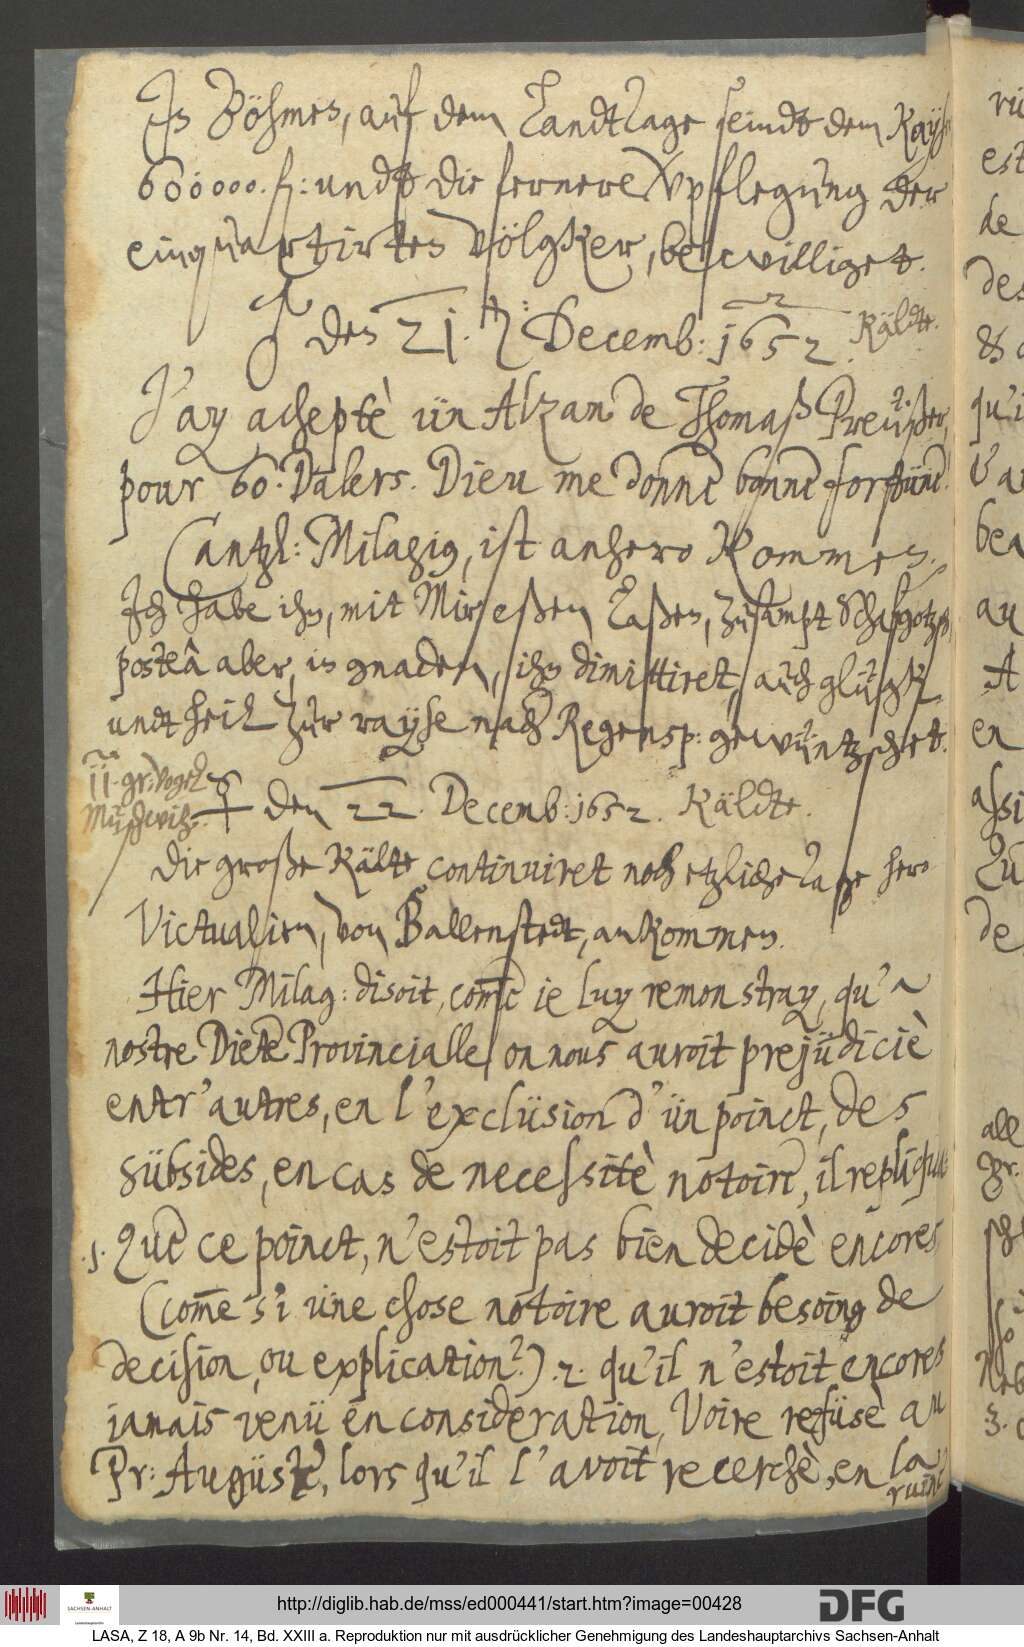 In Böhmen, auf dem Landtage seindt dem Kayß
600000. fl: undt die fernere Vpflegung der
einquartirten Völgker, bewilliget.
♂ den 21. ♄: Decemb: 1652. Käldte.
J'ay achepté ün Alzan de Thomaß Preüßer,
pour 60. Dalers. Dieu me donne bonne fortüne.
Cantzl: Milagig, ist anhero kommen.
Ich habe ihn, mit Mir eßen laßen, zusampt Schafgotzen,
posteà aber, in gnaden, ihn dimittiret, auch glügk,
undt heil zur rayse nach Regensp: gewüntzschet.
11. gr: Vogel
den 22. Decemb: 1652. Käldte.
Die große Kälte continuiret noch etzliche Tage hero
Victualien, von Ballenstedt, ankommen.
Hier Milag: disoit, come ie luy remonstray, qu'~
nostre Diete Provincialle, on nous auroit prejüdiciè
entr'autres, en l'exclüsion d'ün poinct, des
sübsides, en cas de necessitè notoire, il repliqua:
1. Que ce poinct, n'estoit pas bien decidè encores
(come si üne chose notoire auroit besoing de
decision, ou explication?) 2. qu'il n'estoit encores
iamais venü en consideration, Voire refüsè au
Pr: Augüste, lors qu'il l'avoit recerchè, en la
ruine
rü
est
de
des
&
qu'i
l'a
bea
au
A
en
assi
Zu
de
all
gr.
3.
http://diglib.hab.de/mss/ed000441/start.htm?image=00428
SACHSEN-ANHALT
DFG
LASA, Z 18, A 9b Nr. 14, Bd. XXIII a. Reproduktion nur mit ausdrücklicher Genehmigung des Landeshauptarchivs Sachsen-Anhalt